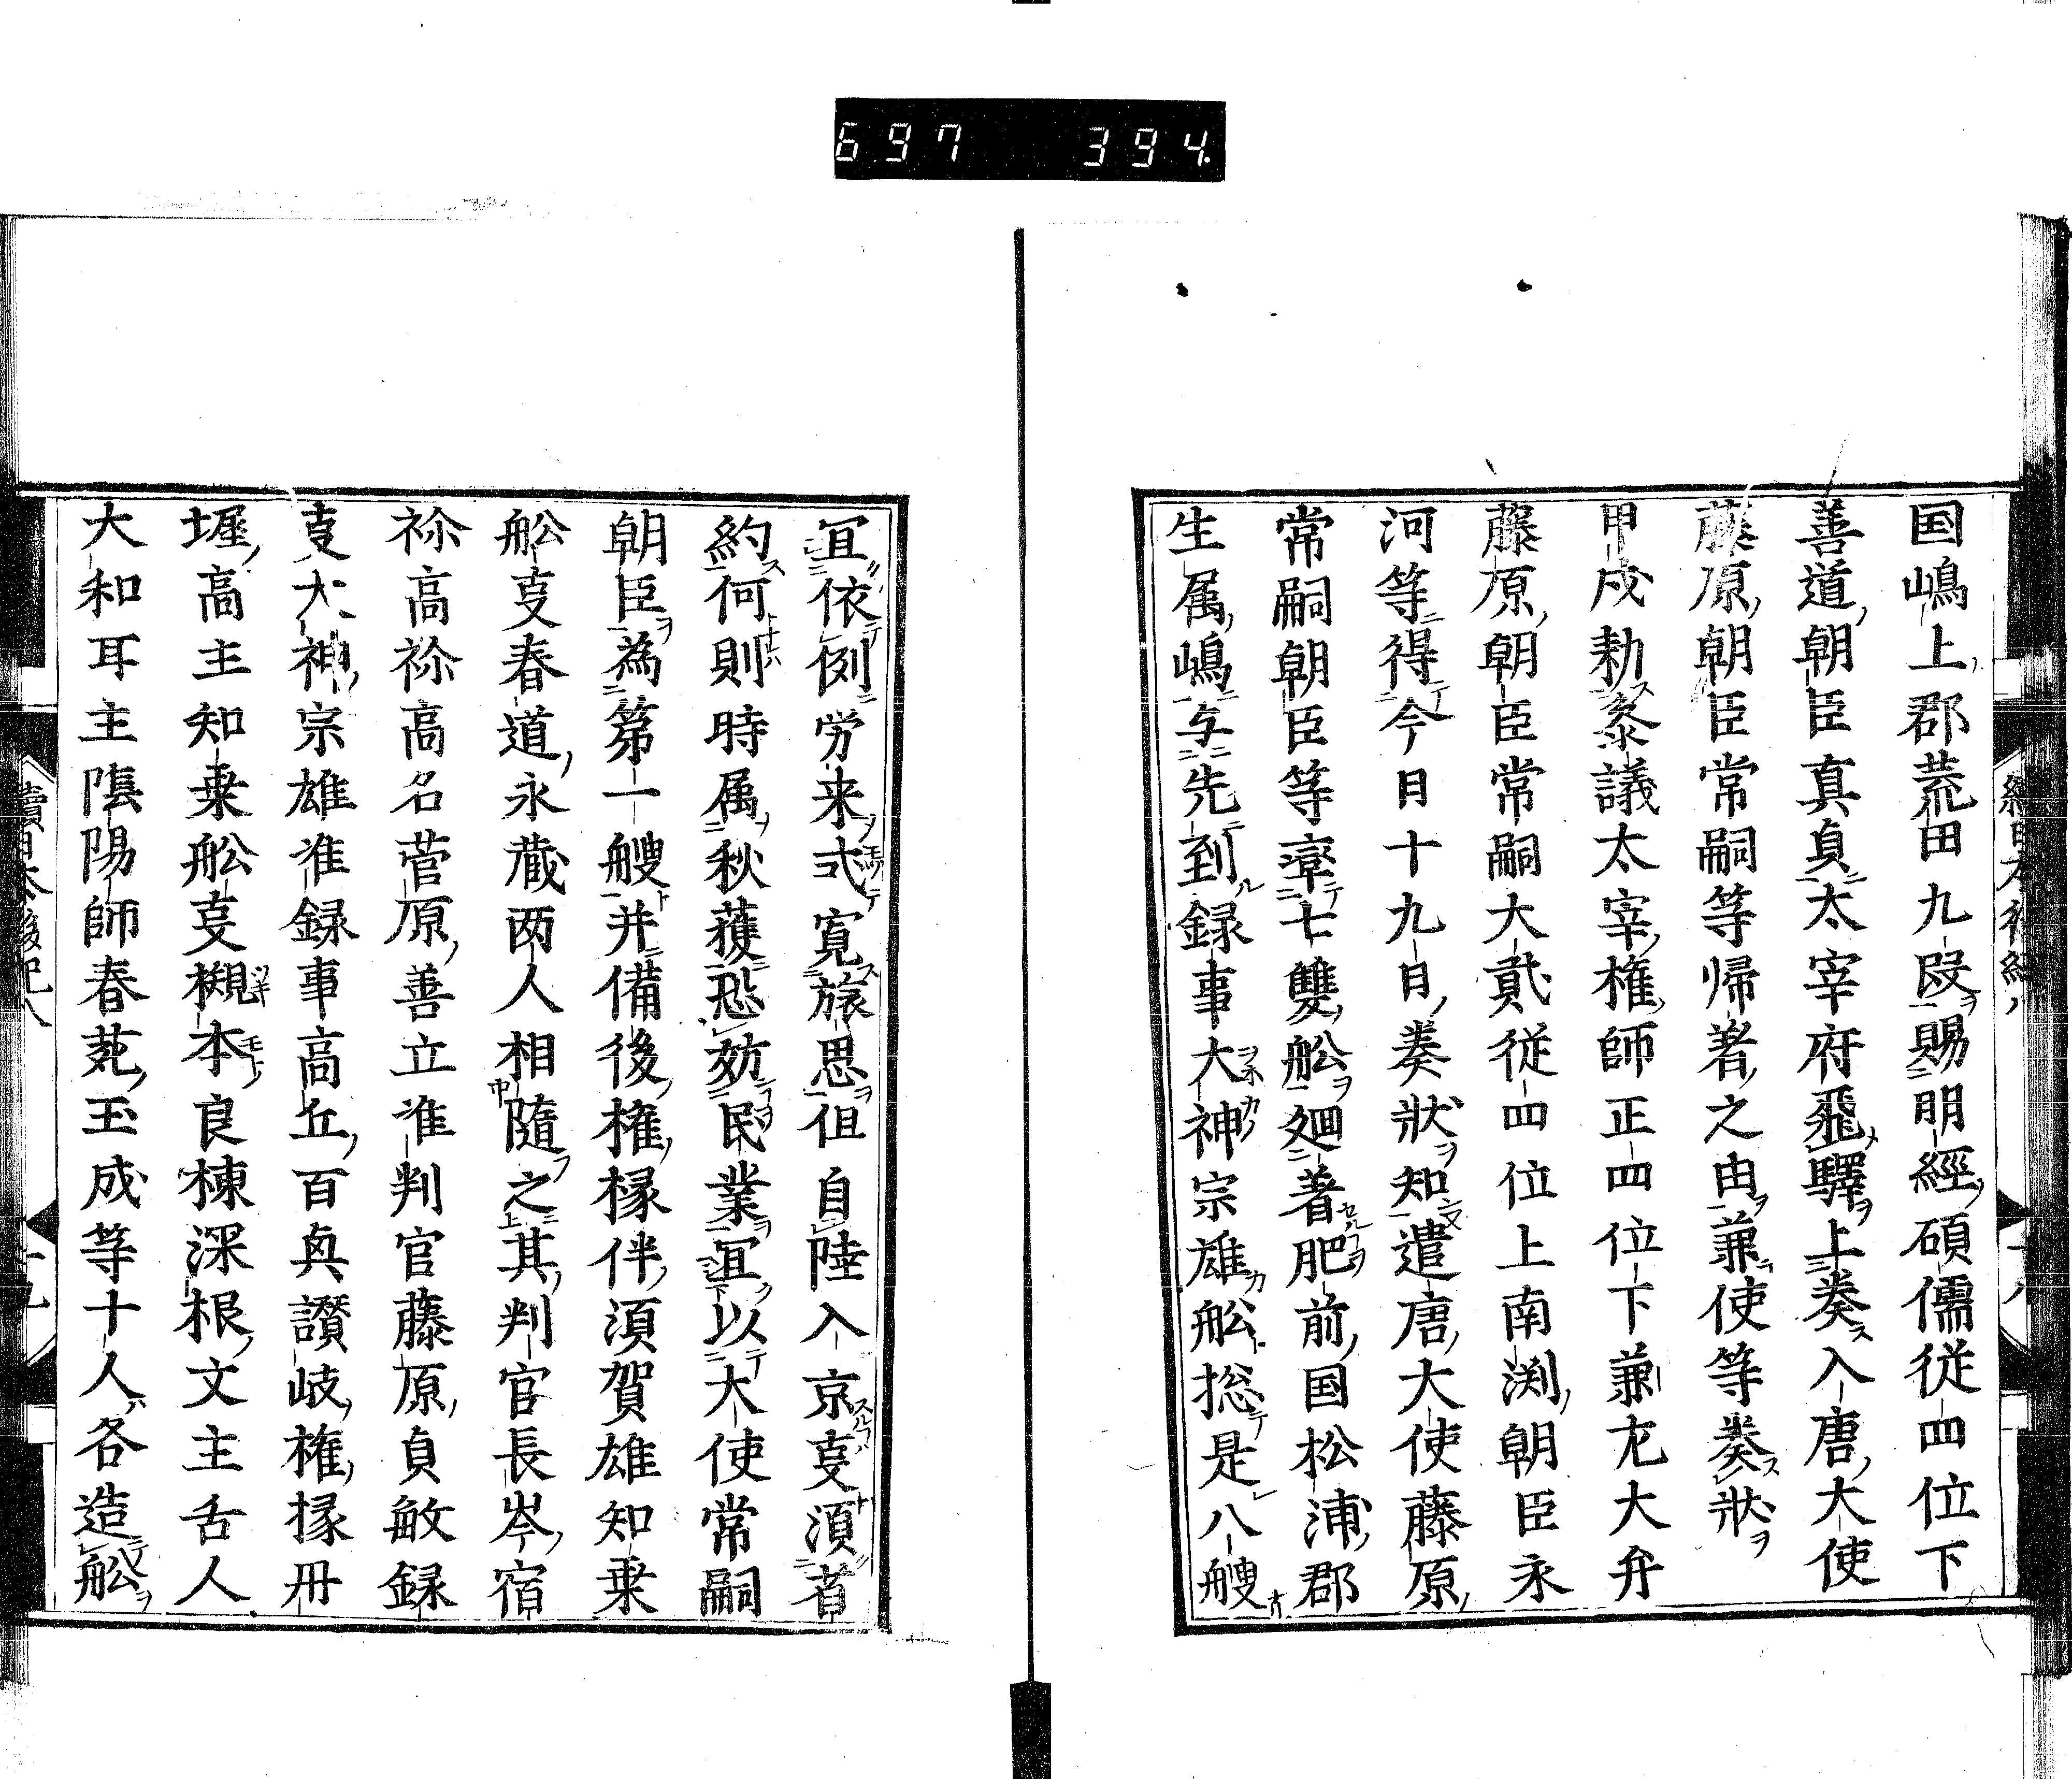 697 394
国嶋上郡荒田九段賜明經碩儒従四位下
善道朝臣真貞太宰府飛驛上奏入唐大使
藤原朝臣常嗣等帰著之由兼使等奏状
甲戌勅叅議太宰権師正四位下兼左大弁
藤原朝臣常嗣大貳従四位上南渕朝臣永
河等得今月十九日奏状知遣唐大使藤原
常嗣朝臣等率七雙舩廻著肥前国松浦郡
生属嶋与先到録事大神宗雄舩揔是八艘
宜依例労来式寛旅思但自陸入京事湏省
約何則時属秋穫恐妨民業宜以大使常嗣
朝臣為第一艘并備後権掾伴湏賀雄知乗
舩事春道永蔵两人相隨之其判官長岑宿
祢高祢高名菅原善立准判官藤原貞敏録
事大神宗雄准録事高丘百興讃岐権掾丹
墀高主知乗舩事槻本良棟深根文主舌人
大和耳主陰陽師春菀玉成等十人各造舩
續日本後紀八